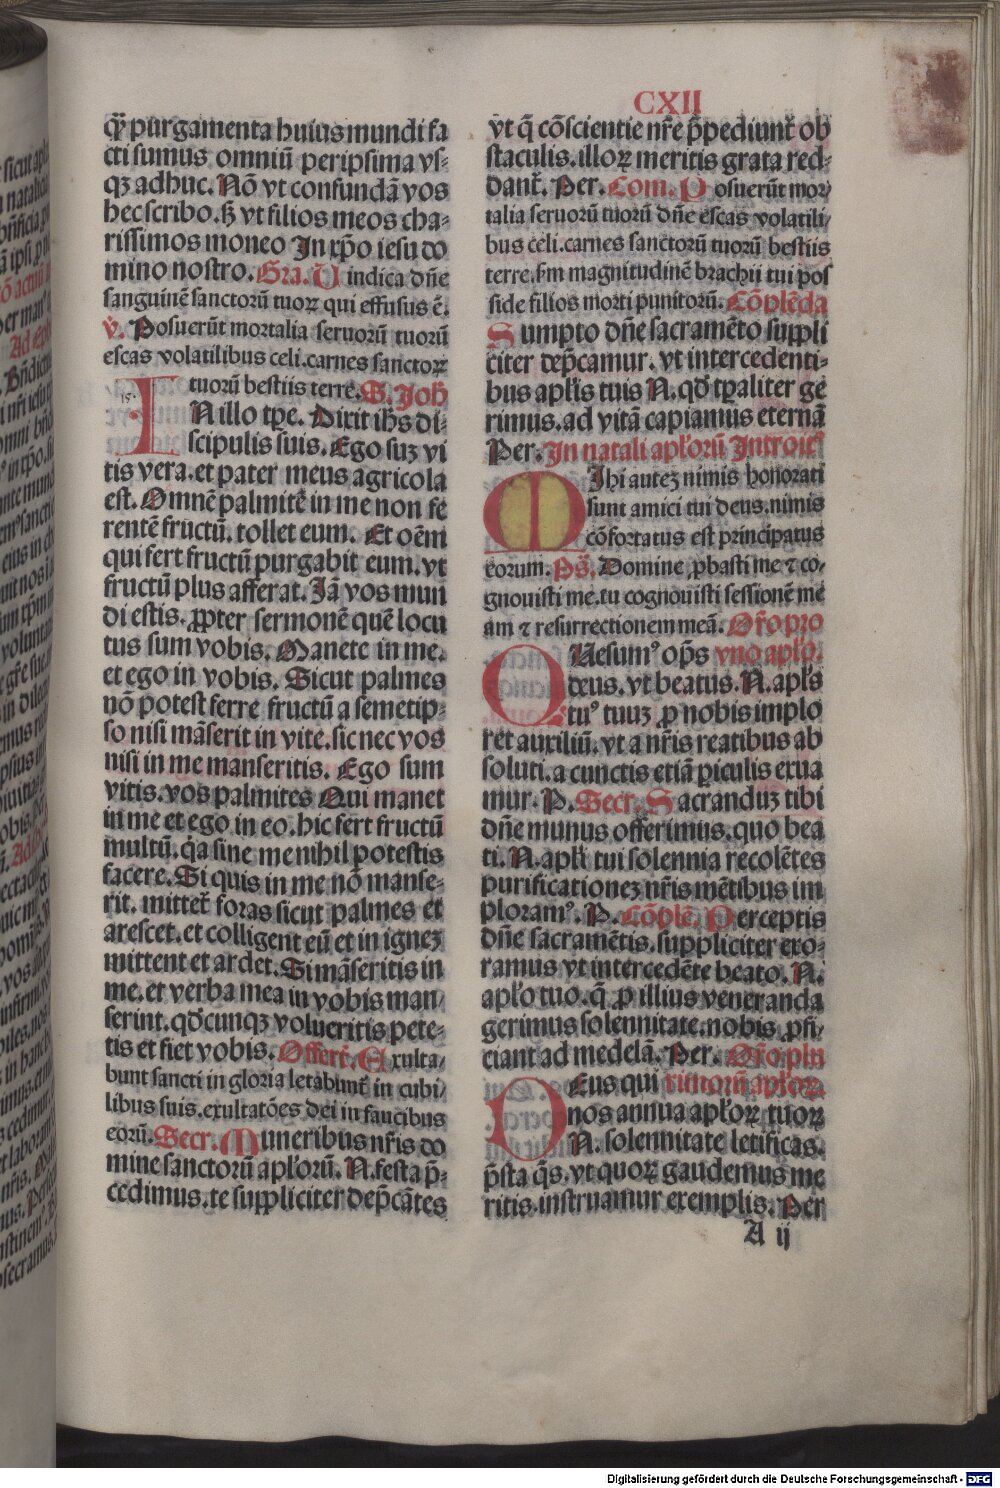 CXII
qͣ purgamenta huius mundi fa
cti sumus omniū peripsima vs-
qꝫ adhuc. Nō vt confundā vos
hec scribo. sꝫ vt filios meos cha-
rissimos moneo In xp̄o iesu do
mino nostro. Gra. Uindica dn̄e
sanguinē sanctorū tuoꝝ qui effusus ē.
v̄. Posuerūt mortalia seruorū tuorū
escas volatilibus celi. carnes sanctoꝝ
tuorū bestiis terre. S. Joh̄
IN illo tp̄e. Dixit ih̄s di-
scipulis suis. Ego suꝫ vi
tis vera. et pater meus agricola
est. Omnē palmitē in me non fe
rentē fructū. tollet eum. Et oēm
qui fert fructū purgabit eum. vt
fructū plus afferat. Jā vos mun
di estis. ꝓpter sermonē quē locu
tus sum vobis. Manete in me.
et ego in vobis. Sicut palmes
nō potest ferre fructū a semetip-
so nisi māserit in vite. sic nec vos
nisi in me manseritis. Ego sum
vitis. vos palmites Qui manet
in me et ego in eo. hic fert fructū
multū. q̄a sine me nihil potestis
facere. Si quis in me nō manse-
rit. mittet̄ foras sicut palmes et
arescet. et colligent eū et in igneꝫ
mittent et ardet. Si māseritis in
me. et verba mea in vobis man-
serint. qd̄cunqꝫ volueritis pete-
tis et fiet vobis. Offert̄. Exulta-
bunt sancti in gloria letabunt̄ in cubi-
libus suis. exultatōes dei in faucibus
eorū. Secr. Muneribus nr̄is do
mine sanctorū apl'orū. N. festa p̄-
cedimus. te suppliciter dep̄cātes
vt q̄ cōscientie nr̄e p̄pediunt̄ ob
staculis. illoꝝ meritis grata red-
dant̄. Per. Com. Posuerūt mor-
talia seruorū tuorū dn̄e escas volatili-
bus celi. carnes sanctorū tuorū bestiis
terre. s̄m magnitudinē brachii tui pos
side filios morti punitorū. Cōplēda
Sumpto dn̄e sacramēto suppli
citer dep̄camur. vt intercedenti-
bus apl'is tuis N. qd̄ tp̄aliter ge
rimus. ad vitā capiamus eternā
Per. In natali apl'orū Introit⁹
MIhi auteꝫ nimis honorati
sunt amici tui deus. nimis
cōfortatus est principatus
eorum. Ps̄. Domine ꝓbasti me ⁊ co-
gnouisti me. tu cognouisti sessionē me
am ⁊ resurrectionem meā. Or̄o pro
QUesum⁹ op̄s vno apl'o.
deus. vt beatus. N. apl's
tu⁹ tuuꝫ ꝓ nobis implo
ret auxiliū. vt a nr̄is reatibus ab
soluti. a cunctis etiā ꝑiculis exua
mur. P. Secr. Sacranduꝫ tibi
dn̄e munus offerimus. quo bea
ti. N. apl'i tui solennia recolētes
purificationeꝫ nr̄is mētibus im
ploram⁹. P. Cōplē. Perceptis
dn̄e sacramētis. suppliciter exo-
ramus vt intercedēte beato. N.
apl'o tuo. q̄ ꝓ illius veneranda
gerimus solennitate. nobis ꝓfi-
ciant ad medelā. Per. Or̄o plu
DEus qui rimorū apl'oꝝ
nos annua apl'oꝝ tuoꝝ
N. solennitate letificas.
p̄sta q̄s. vt quoꝝ gaudemus me
ritis. instruamur exemplis. Per
A ij
Digitalisierung gefördert durch die Deutsche Forschungsgemeinschaft - DFG